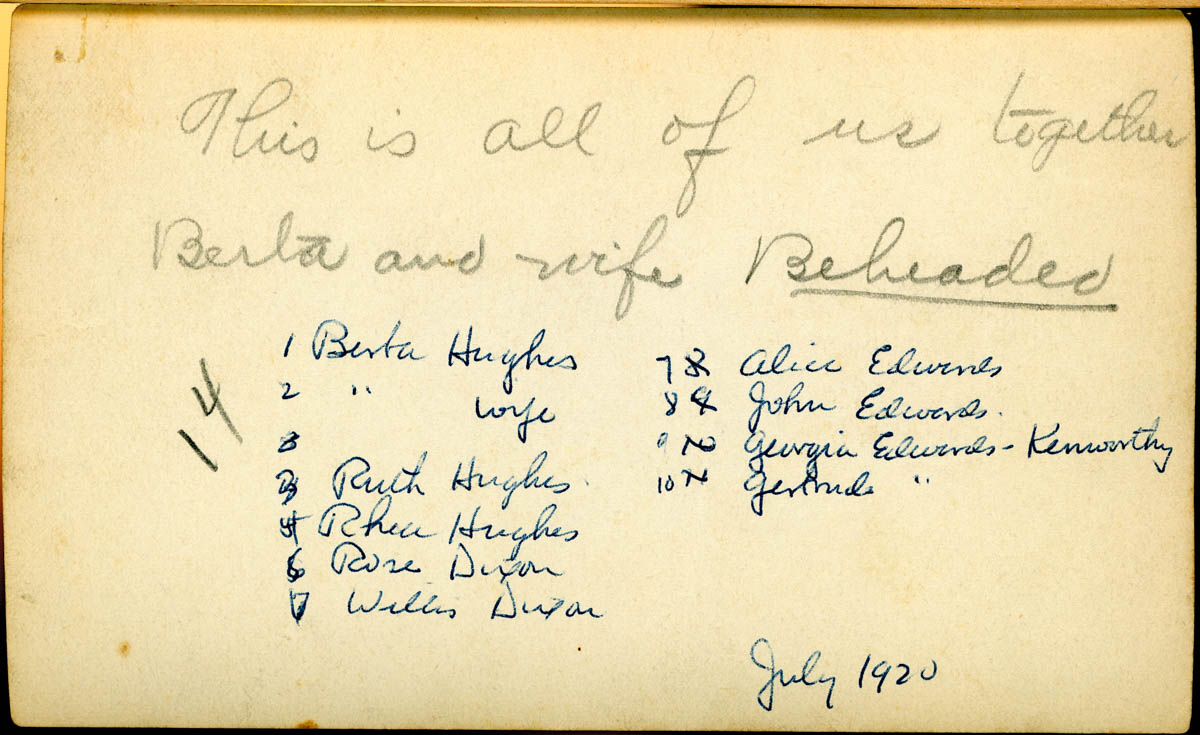 This is all of us together
Berta and wife Beheaded
14
1 Berta Hughes
2 " wife
3
3 Ruth Hughes
4 Rhea Hughes
6 Rose Dixon
7 Willis Dixon
7 8 Alice Edwards
8 9 John Edwards.
9 10 Georgia Edwards - Kenworthy
10 Gertrude "
July 1920